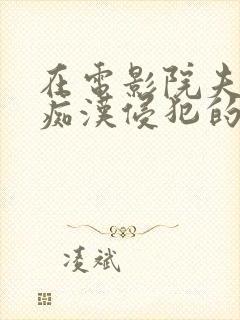 在电影院夫
痴汉侵犯的
凌斌